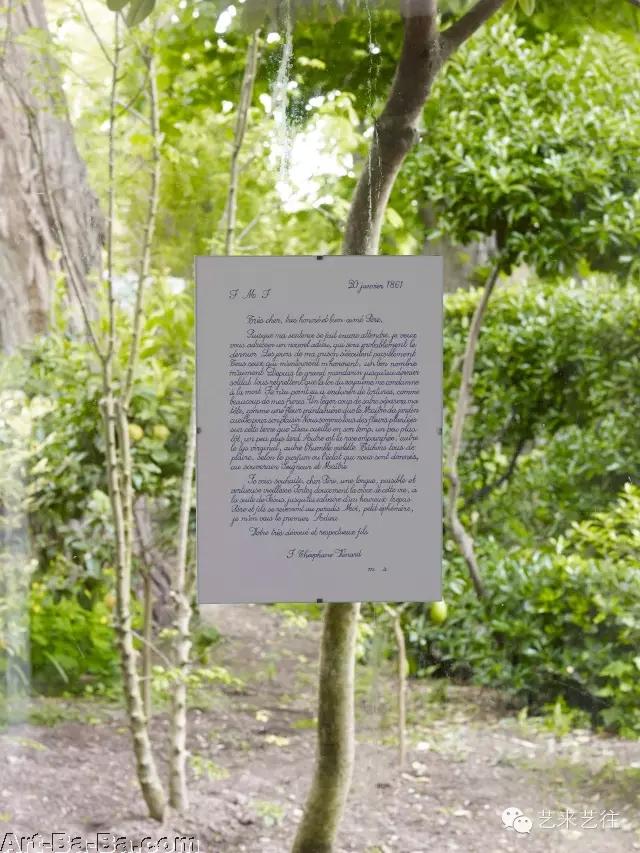 J M J
20 janvier 1861
Très cher, très honoré et bien-aimé Père,
Puisque ma sentence se fait encore attendre, je veux
vous adresser un nouvel adieu, qui sera probablement le
dernier. Les jours de ma prison s'écoulent paisiblement.
Tous ceux qui m'entourent m'honorent, un bon nombre
m'aiment. Depuis le grand mandarin jusqu'au dernier
soldat, tous regrettent que la loi du royaume me condamne
à la mort. Je n'ai point eu à endurer de tortures, comme
beaucoup de mes frères. Un léger coup de sabre séparera ma
tête, comme une fleur printanière que le Maître du jardin
cueille pour son plaisir. Nous sommes tous des fleurs plantées
sur cette terre que Dieu cueille en son temps, un peu plus
tôt, un peu plus tard. Autre est la rose empourprée, autre
le lys virginal, autre l'humble violette. Tâchons tous de
plaire, selon le parfum ou l'éclat qui nous sont donnés,
au souverain Seigneur et Maître.
Je vous souhaite, cher Père, une longue, paisible et
vertueuse vieillesse. Portez doucement la croix de cette vie, à
la suite de Jésus, jusqu'au calvaire d'un heureux trépas.
Père et fils se reverront au paradis. Moi, petit éphémère,
je m'en vais le premier. Adieu.
Votre très dévoué et respectueux fils.
J. Théophane Vénard
m s
艺来艺往
Art-Ba-Ba.com